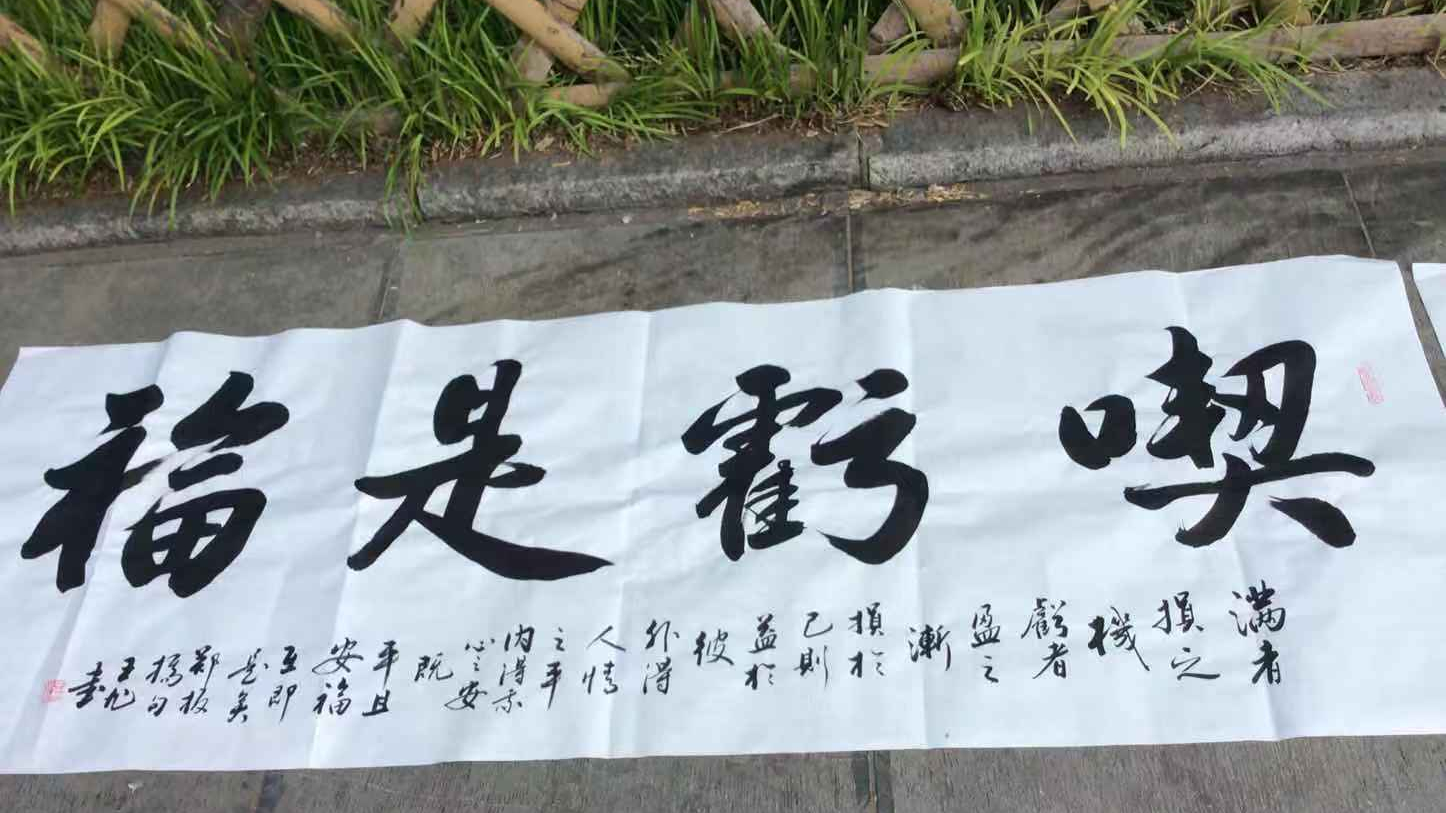 喫虧是福
滿者
損之
機
虧者
盈之
漸
損於
己則
益於
彼
外得
人情
之平
内得
心之安
既
平且
安福
即
是矣
鄭板
橋句
王
書